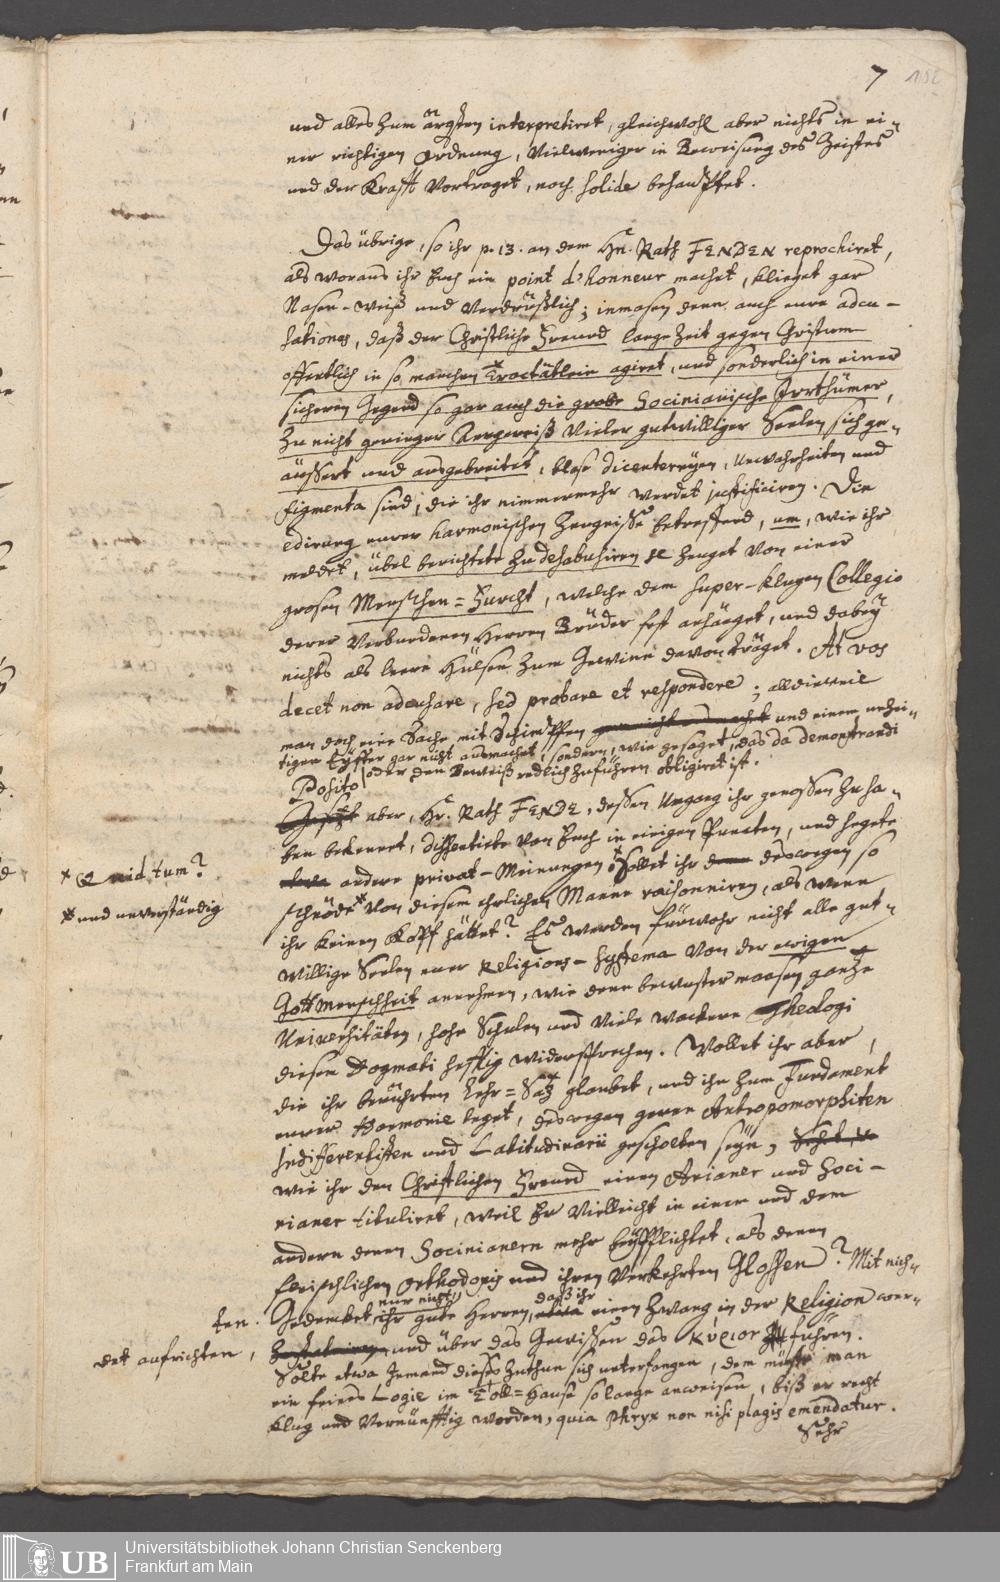 7 152
und alles zum ärgsten interpretiret, gleichwohl aber nichts in ei-
ner richtigen Ordnung, vielweniger in Beweisung des Geistes
und der Krafft vortraget, noch solide behauptet.
Das übrige, so ihr p. 13. an dem Hn. Rath FENDEN reprochiret,
als woraus ihr Euch ein point d'honneur machet, klinget gar
Nasen-weiß und verdrüßlich; inmasen denn auch eure accu-
sationes, daß der Christliche Freund lange Zeit gegen Christum
offentlich in so manchen Tractätlein agiret, und sonderlich in einer
sicheren Gegend so gar auch die grobe Socinianische Irrthümer,
zu nicht geringer Aergerniß vieler gutwilliger Seelen, sich ge-
äussert und ausgebreitet, blose dicentereyen, Unwahrheiten und
figmenta sind, die ihr nimmermehr werdet justificiren. Die
edirung eurer harmonischen Zeugnisse betreffend, um, wie ihr
meldet, übel berichtete zu desabusiren &c zeuget von einer
grosen Menschen=Furcht, welche dem super-klugen Collegio
derer Verbundenen Herren Brüder fest anhänget, und dabey
nichts als leere Hülsen zum Gewinn davon träget. At vos
decet non accusare, sed probare et respondere; alldieweil
man doch eine Sache mit Schimpffen gar nicht ausmachet und einem unzei-
tigen Eyffer gar nicht ausmachet, sondern, wie gesaget, das da demonstrandi
oder den Beweiß redlich zuführen obligiret ist.
Posito
Gesetzt aber, Hr. Rath FENDE, dessen Umgang ihr genossen zu ha-
ben bekennet, dissentirte von Euch in einigen Puncten, und hegete
etwa andere privat-Meinungen * Sollet ihr denn deswegen so
* Quid tum?
schnöde * von diesem ehrlichen Manne raisonniren, als wenn
* und unverständig
ihr keinen Kopff hättet? Es werden fürwahr nicht alle gut-
willige Seelen euer Religions-Systema von der ewigen
Gottmenschheit annehmen, wie denn bewuster maasen gantze
Universitäten, hohe Schulen und viele wackere Theologi
diesem Dogmati hefftig widersprechen. Wollet ihr aber,
die ihr berührten Lehr=Satz glaubet, und ihn zum Fundament
eurer Harmonie leget, deswegen gerne Antropomorphiten
Indifferentisten und Latitudinarii gescholten seyn,
wie ihr den Christlichen Freund einen Arianer und Soci-
nianer tituliret, weil Er vielleicht in einem und dem
andern denen Socinianern mehr beypflichtet, als denen
fleischlichen Orthodoxis und ihren verkehrten Glossen? Mit nich-
ten. Gedencket nur nicht, ihr gute Herren, daß ihr einen Zwang in der Religion wer-
det aufrichten, und über das Gewissen das κύριον führen.
Sölte etwa jemand dieses zuthun sich unterfangen, dem müste man
ein feines Logie im Toll=Hause so lange anweisen, biß er recht
klug und vernünfftig worden, quia Phryx non nisi plagis emendatur.
Sehr
Universitätsbibliothek Johann Christian Senckenberg
Frankfurt am Main
UB